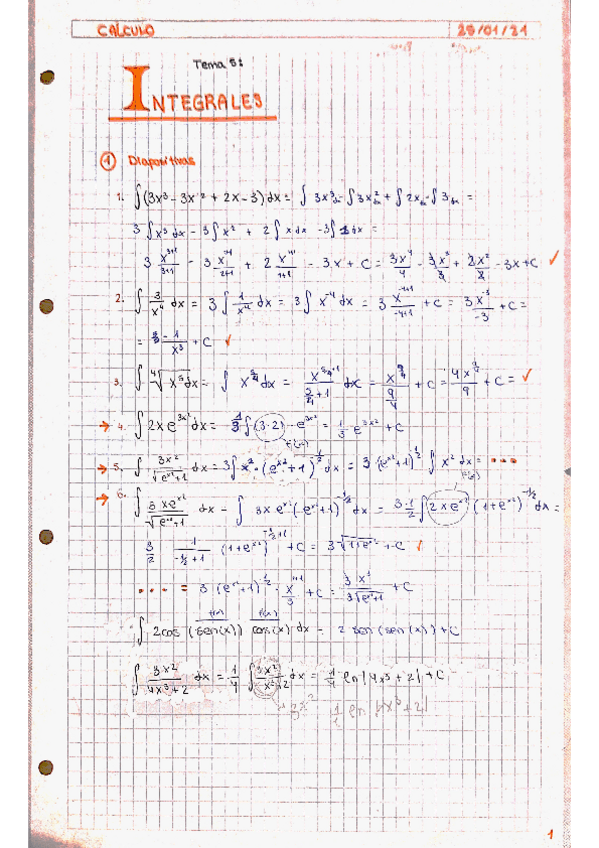 CÁLCULO 25/01/21
Tema 5:
INTEGRALES
① Diapositivas
1. ∫(3x³ - 3x² + 2x - 3) dx = ∫ 3x³dx - ∫ 3x²dx + ∫ 2xdx - ∫ 3dx =
3 ∫ x³ dx - 3 ∫ x² + 2 ∫ x dx - 3 ∫ 1 dx =
3 x³⁺¹/3+1 - 3 + 2 x¹⁺¹/1+1 - 3x + C = 3x⁴/4 - 3x³/3 + 2x²/2 - 3x + C ✓
2. ∫ 3/x⁴ dx = 3 ∫ 1/x⁴ dx = 3 ∫ x⁻⁴ dx = 3 x⁻⁴⁺¹/-4+1 + C = 3x⁻³/-3 + C =
= -1/x³ + C ✓
3. ∫ ⁴√x³ dx = ∫ x^3/4 dx = x^3/4+1 / 3/4+1 dx = x / 9/4 + C = 4x/9 + C = ✓
→ 4. ∫ 2x e^3x² dx = 1/3 ∫ (3·2) · e^3x² = 1/3 e^3x² + C
f'(x)
→ 5. ∫ 3x²/√e^x²+1 dx = 3 ∫ x² · (e^x² + 1)^-1/2 dx = 3 (e^x²+1)^1/2 ∫ x² dx = ...
f'(x)
→ 6. ∫ 3xe^x²/√e^x²+1 dx - ∫ 3x e^x² · (e^x²+1)^-1/2 dx = 3·1/2 ∫ 2xe^x² (1+e^x²)^-1/2 dx =
3/2 1/-1/2+1 (1+e^x²)^-1/2+1 + C = 3√1+e^x² + C ✓
... = 3 (e^x²+1)^1/2 · x/3 + C = 3x³/3√e^x²+1 + C
f(x) f'(x)
∫ 2cos (sen(x)) cos(x) dx = 2 sen (sen(x)) + C
∫ 3x²/4x³+2 dx = 1/4 ∫ dx = 1/4 ln|4x³+2| + C
1